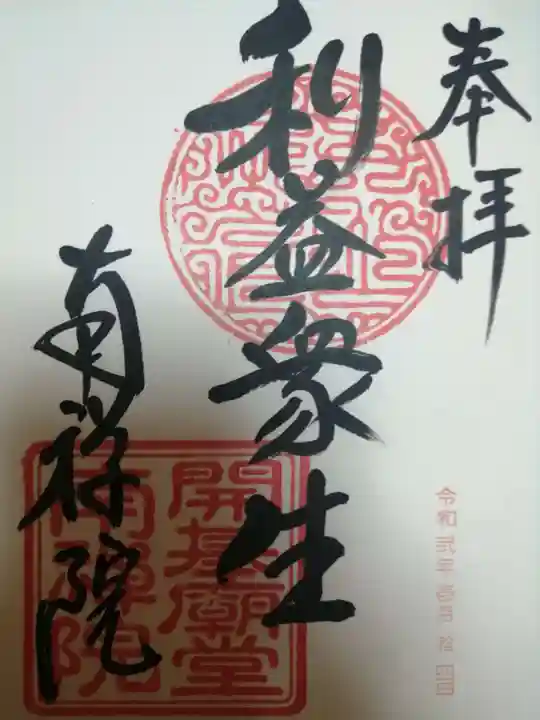 奉拝
利益衆生
南禅院
開基廟堂
南禪院
令和弐年壱月拾四日